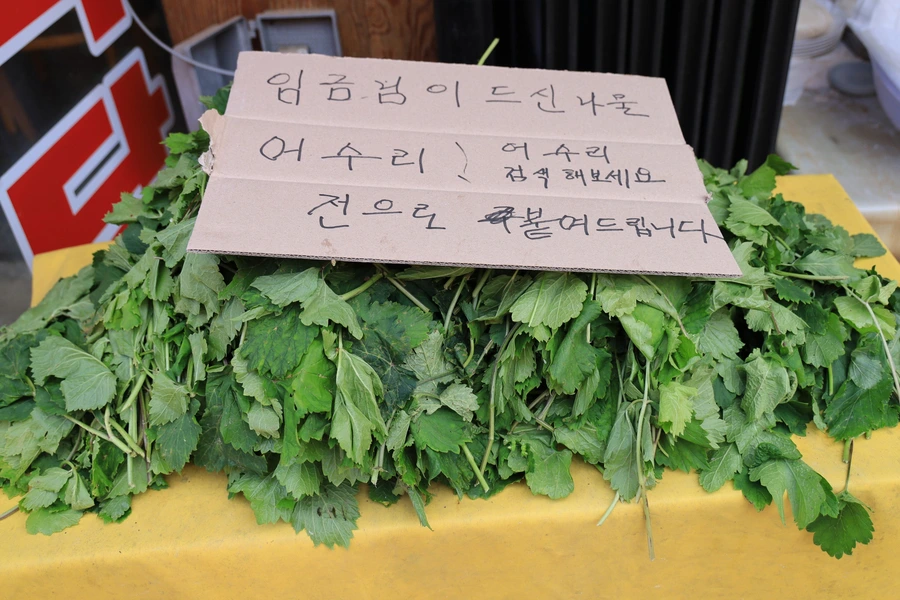 임금님이 드신나물
어수리 ) 어수리
검색 해보세요
전으로 붙여드립니다